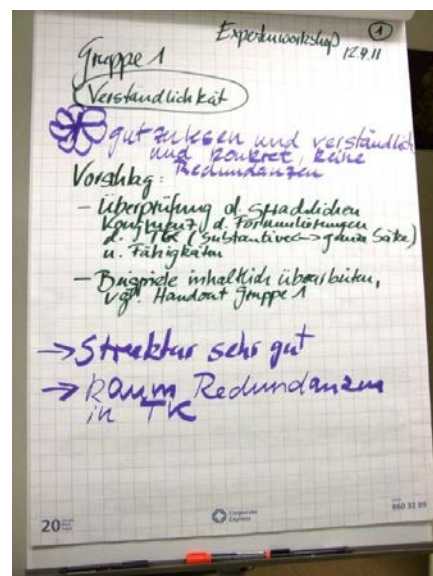 Expertenworkshop
1
12.9.11
Gruppe 1
Verständlichkeit
gut zu lesen und verständlich
und konkret, keine
Redundanzen
Vorschlag:
- Überprüfung d. sprachlichen
Kongruenz d. Formulierungen
d. TK (Substantive <-> ganze Sätze)
u. Fähigkeiten
- Beispiele inhaltlich überarbeiten,
vgl. Handout Gruppe 1
-> Struktur sehr gut
-> kaum Redundanzen
in TK
20
Corporate
Express